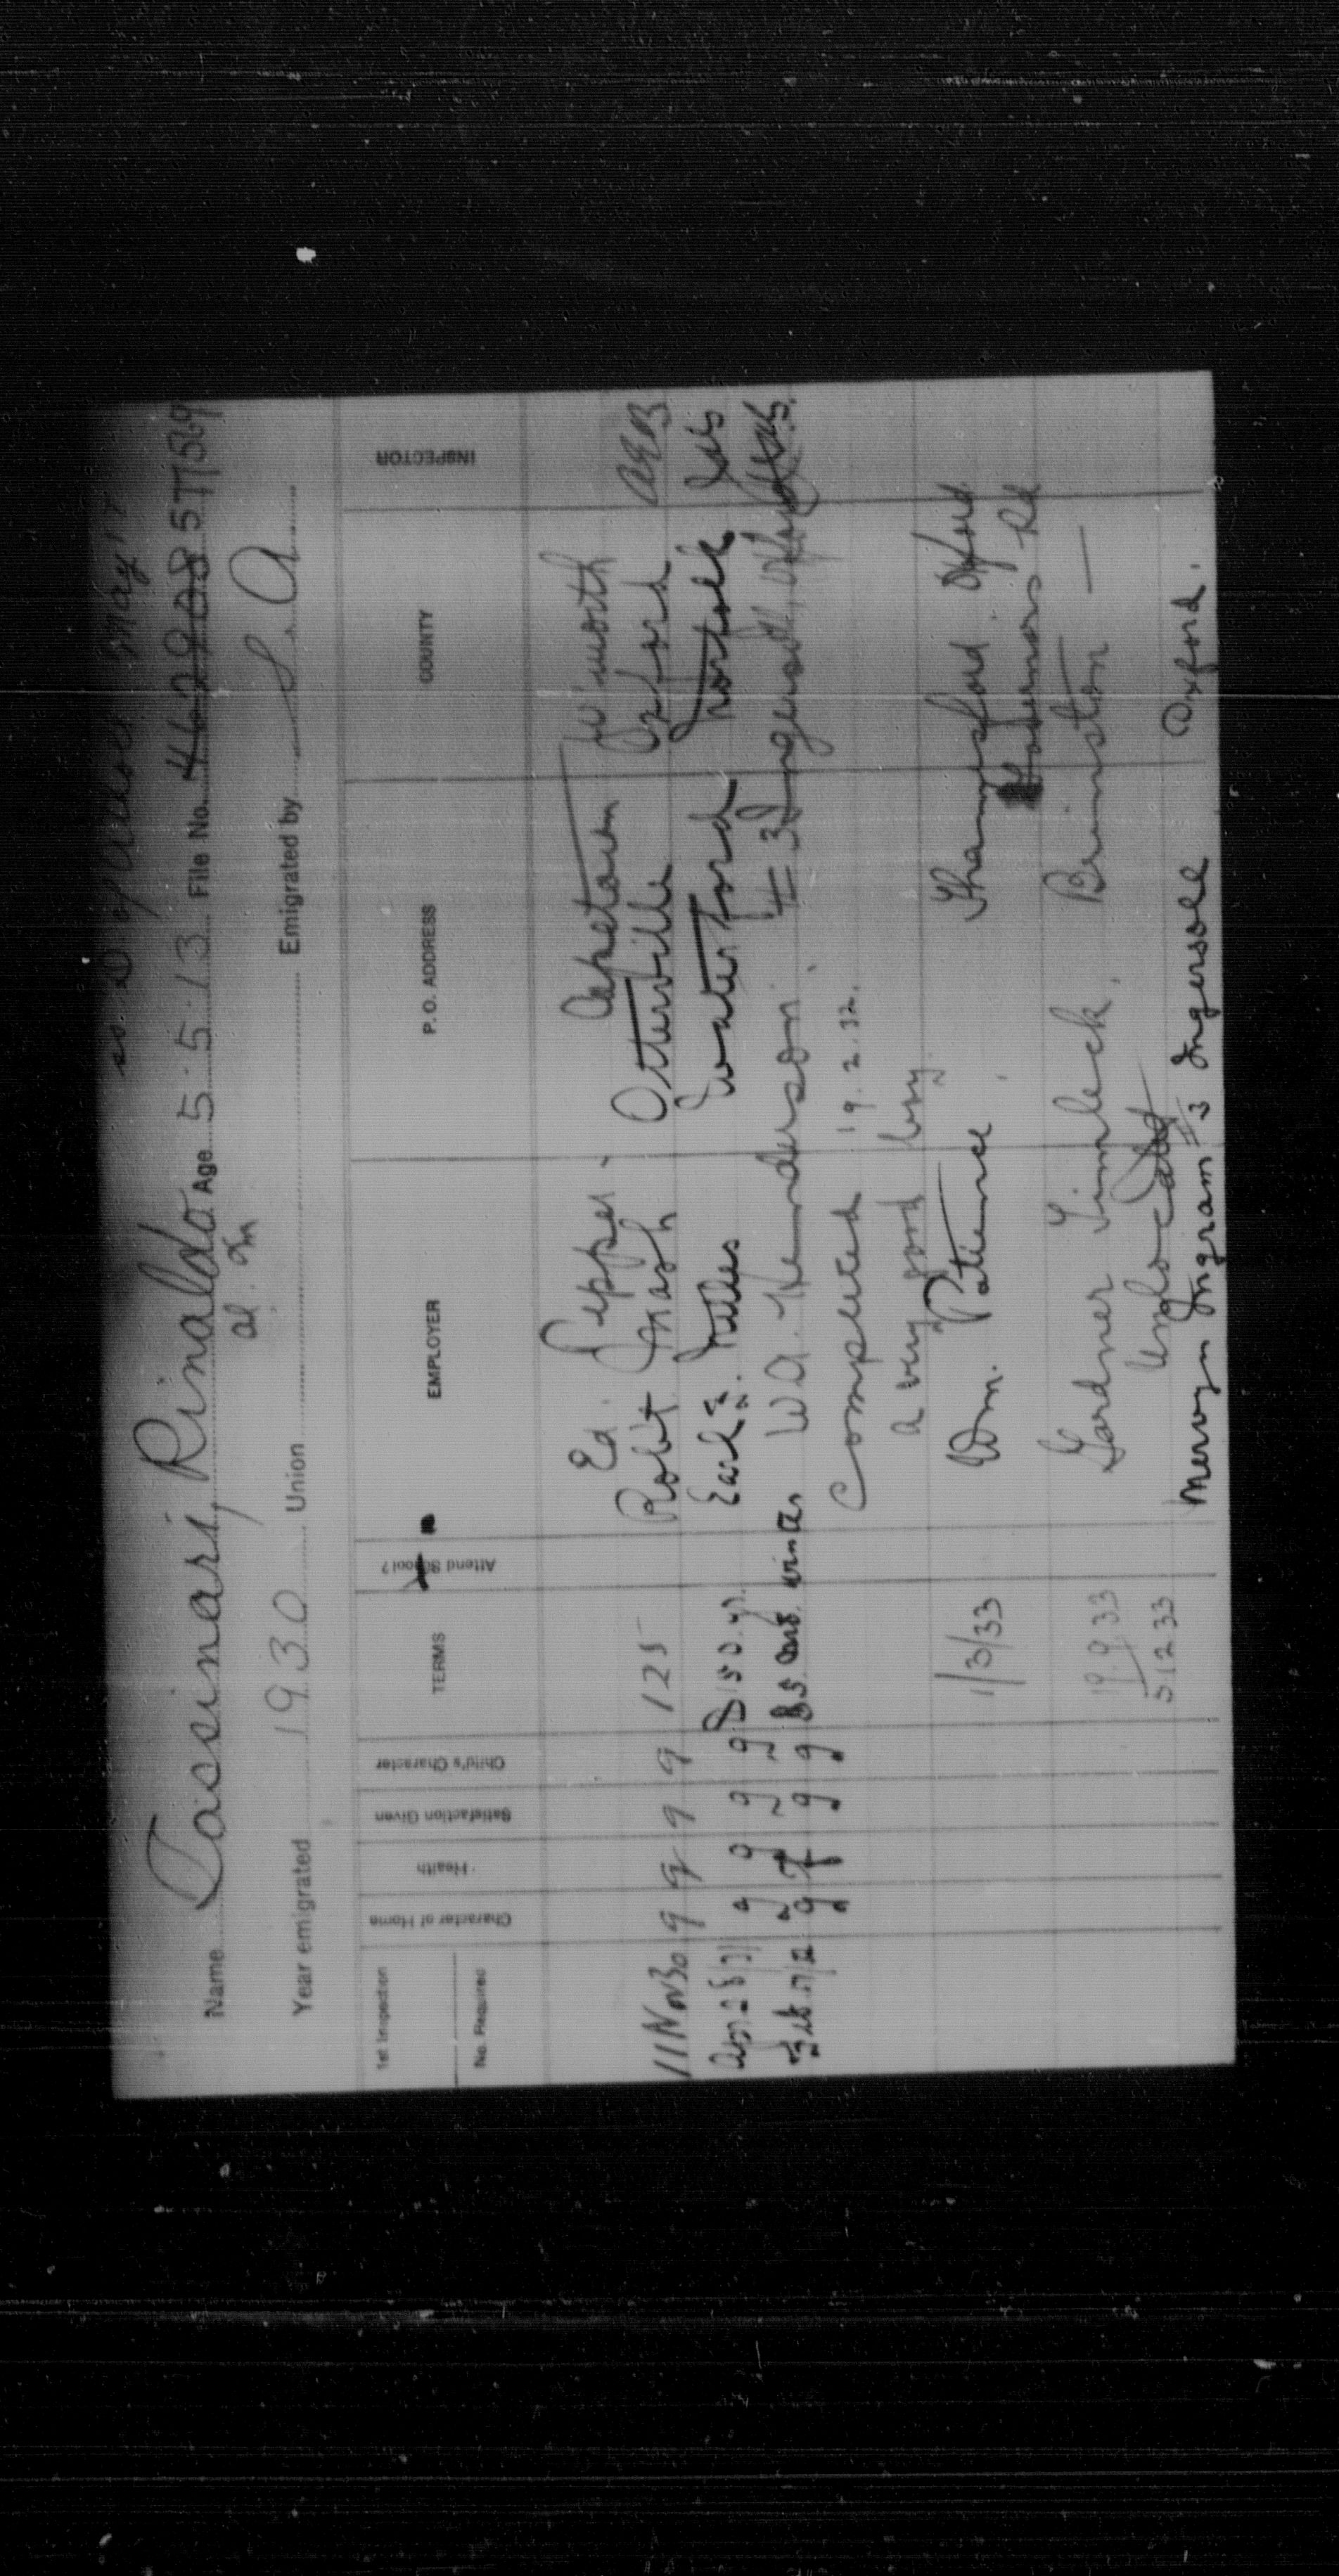 May
Name Tassinari, Rinaldo Age 5.5.13 File No. 462908 577869
Year emigrated 1930 Union Emigrated by S. A.
1st Inspection No. Required Character of Home Health Satisfaction Given Child's Character TERMS Attend School? EMPLOYER P. O. ADDRESS COUNTY INSPECTOR
Ed. Pepper. Capetown W'worth
11 Nov 30 g g g g 125 Robt Nash Otterville Oxford
Apr 28/31 g g g g $150. yr. Earl Waterford Norfolk
Feb 17/32 g g g g W.A. Henderson. # 3 Ingersoll, Oxford
Completed 19.2.32.
a very good boy.
1/3/33 Wm. Patience, Thamesford. Oxford
Rd
19.9.33 Gardner Brinston —
5.12.33
Mervyn Ingram # 3 Ingersoll Oxford.